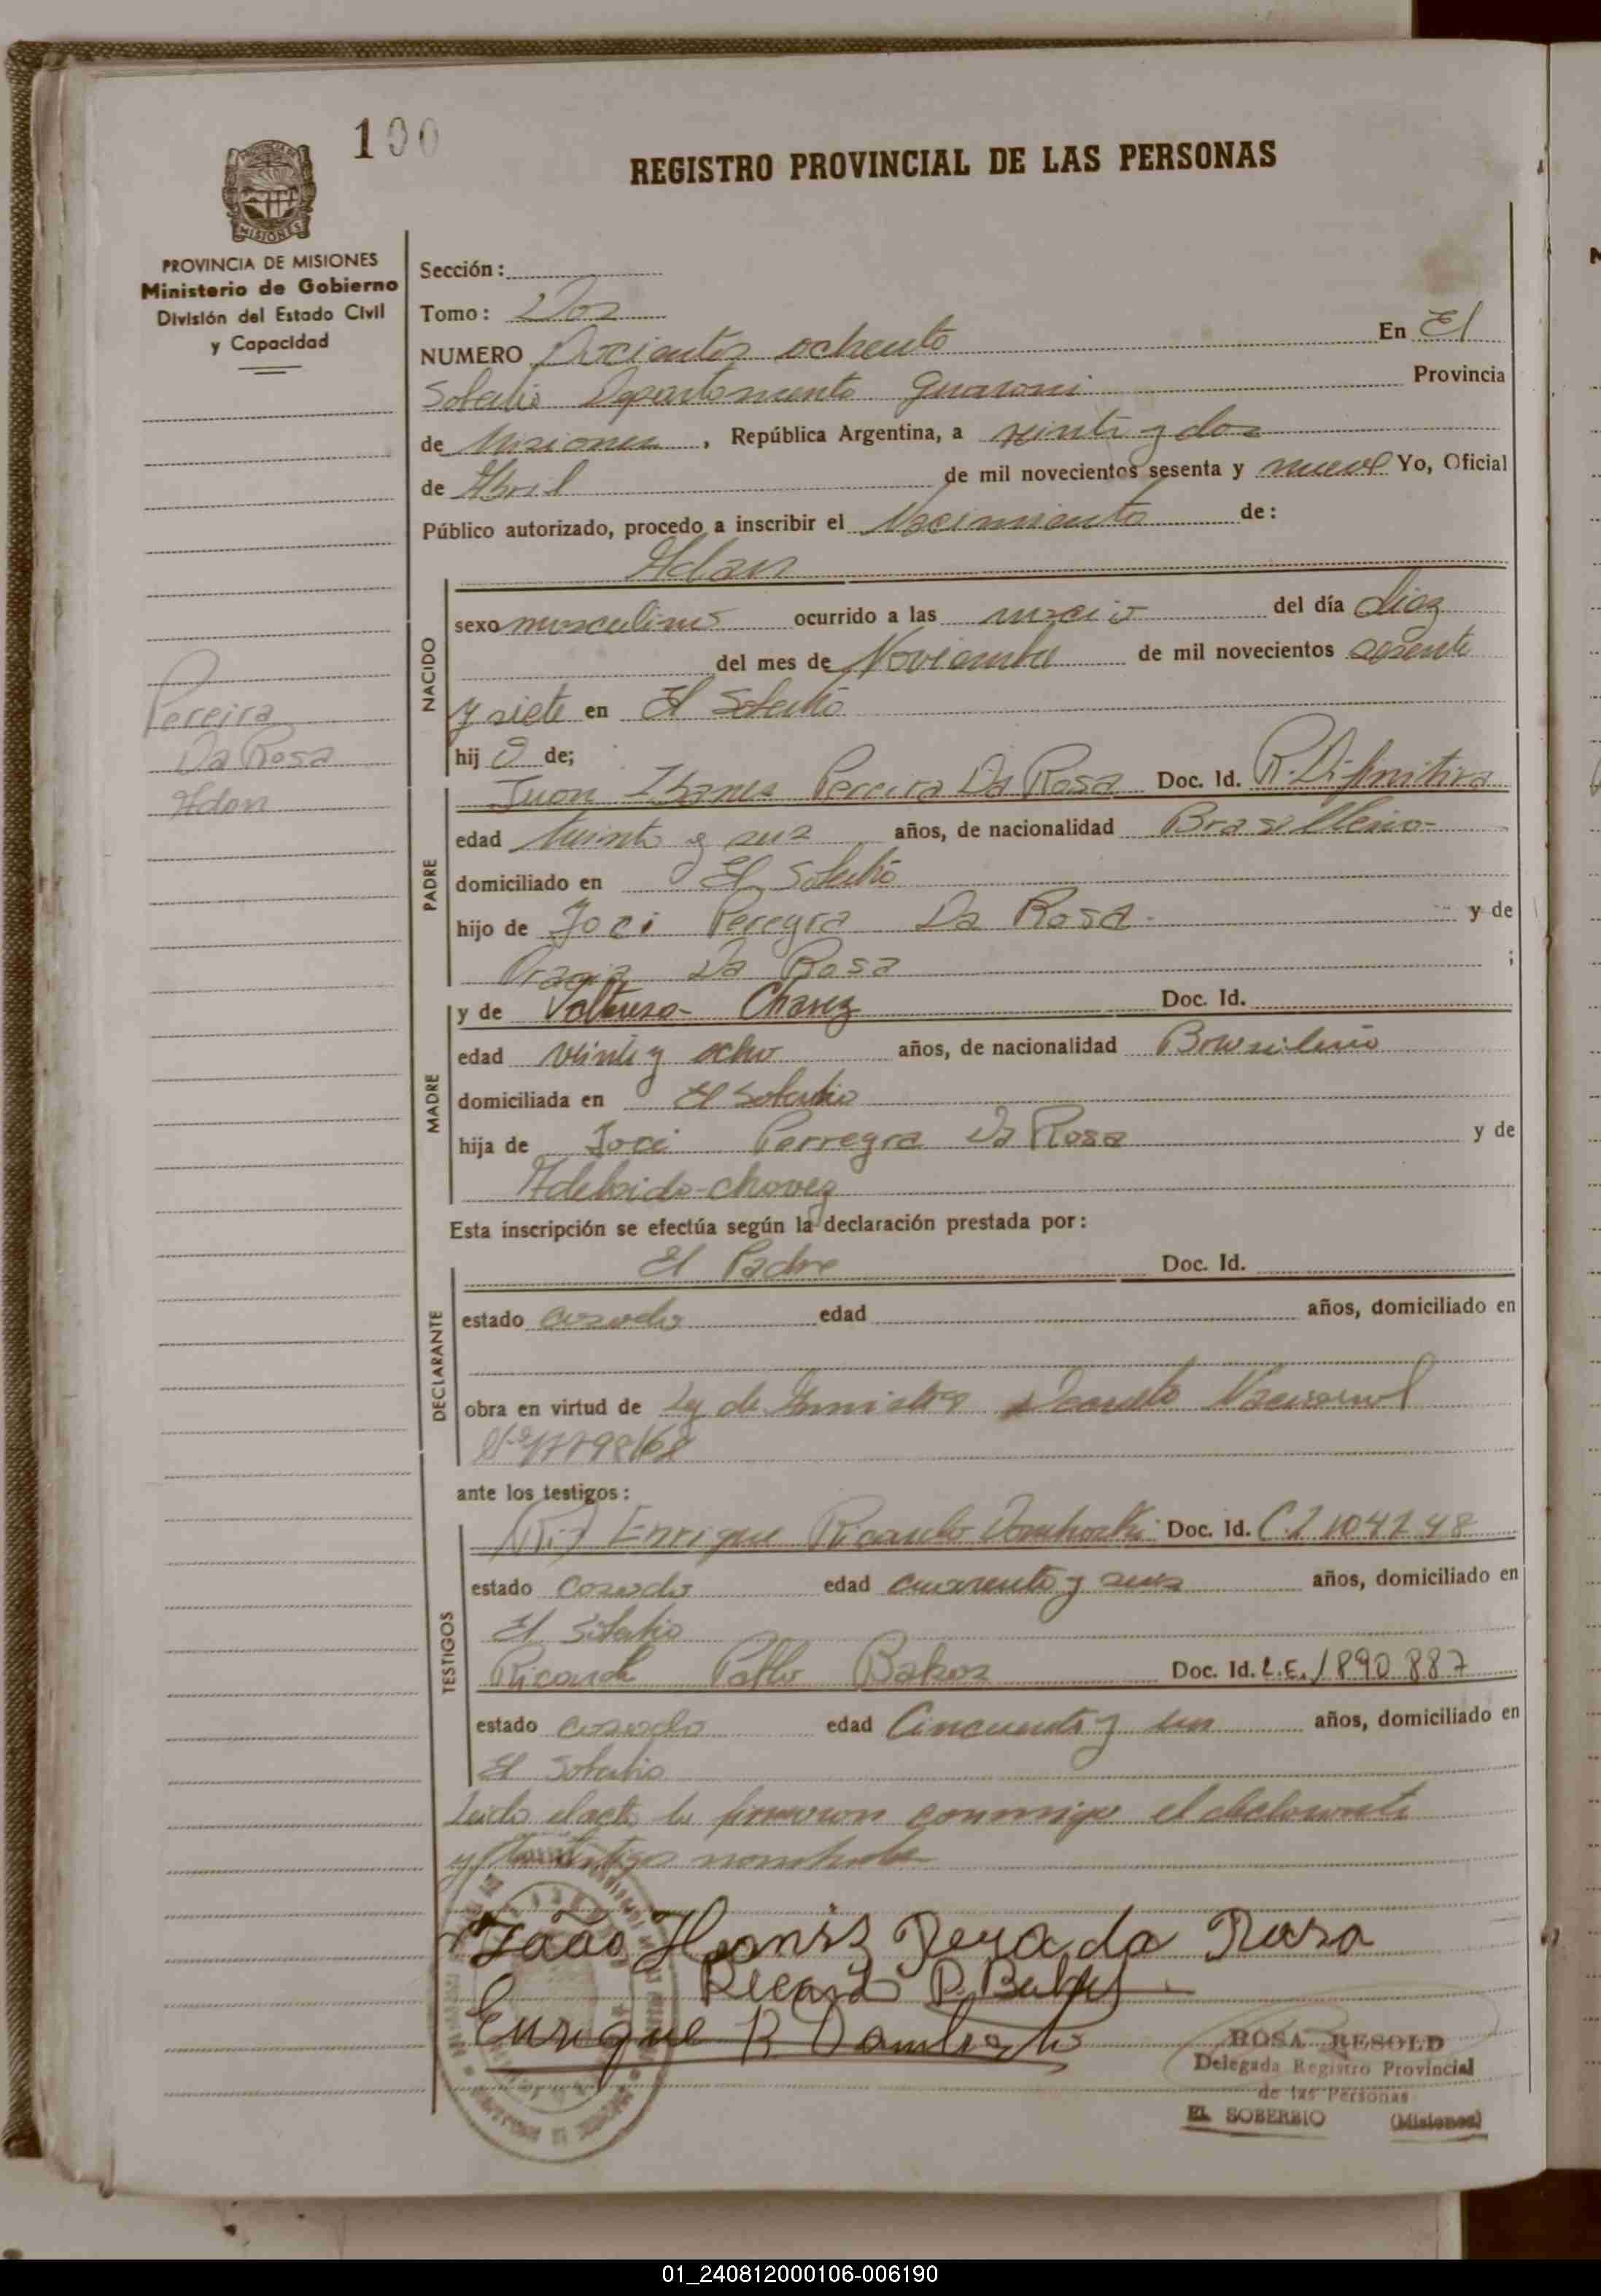 100
REGISTRO PROVINCIAL DE LAS PERSONAS
MISIONES
PROVINCIA DE MISIONES
Ministerio de Gobierno
División del Estado Civil
y Capacidad
Sección:
Tomo: Dos
NUMERO Docientos ochenta En El
Soberbio Departamento Guarani Provincia
de Misiones, República Argentina, a veinti y dos
de Abril de mil novecientos sesenta y nueve Yo, Oficial
Público autorizado, procedo a inscribir el Nacimiento de:
Adan
NACIDO
sexo masculino ocurrido a las del día diez
del mes de Noviembre de mil novecientos sesenta
y siete en El Soberbio
hijo de;
Pereira
Da Rosa
Adan
PADRE
Juan Pereira Da Rosa Doc. Id. R. Difinitiva
edad y años, de nacionalidad Brasilleño-
domiciliado en El Soberbio
hijo de Joci Pereyra Da Rosa- y de
Da Rosa ;
MADRE
y de Chavez Doc. Id.
edad veinti y ocho años, de nacionalidad
domiciliada en El Soberbio
hija de Joci Perreyra Da Rosa y de
chovez
Esta inscripción se efectúa según la declaración prestada por:
DECLARANTE
El Padre Doc. Id.
estado casado edad años, domiciliado en
obra en virtud de Ley de Amnistia Decreto Nacional
Nº 17798/68
ante los testigos:
TESTIGOS
Enrique Ricardo Doc. Id. C.I 104248
estado casado edad cuarenta y seis años, domiciliado en
El Soberbio
Ricardo Pablo Bakos Doc. Id. L.E. 1890.887
estado casado edad Cincuenta y un años, domiciliado en
El Soberbio
Leida el acta la firmaron conmigo el declarante
y testigos nombrados
João da Rosa
Ricardo P. Bakos
Enrique R
ROSA RESOLD
Delegada Registro Provincial
de las Personas
EL SOBERBIO (Misiones)
01_240812000106-006190